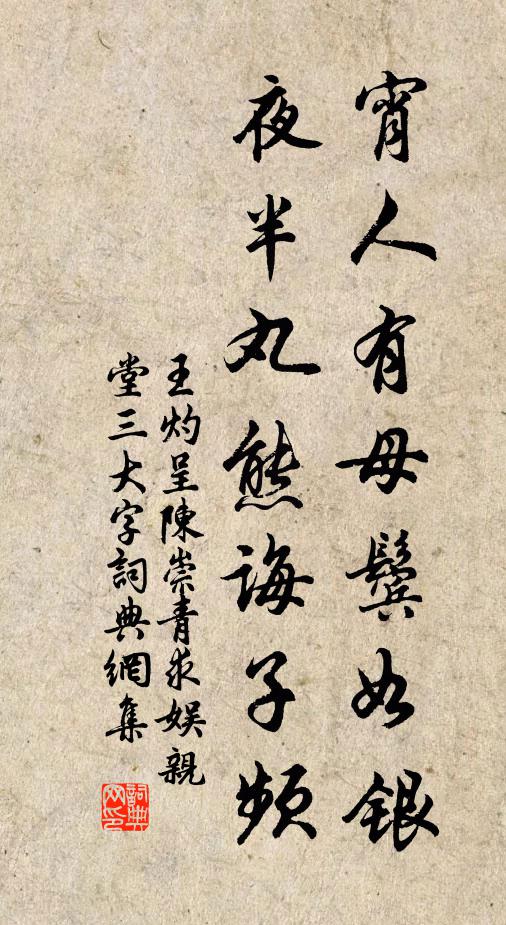 宵人有母鬢如銀
夜半丸熊誨子頻
王灼呈陳崇青求娱親
堂三大字詞典網集
詞典
网印